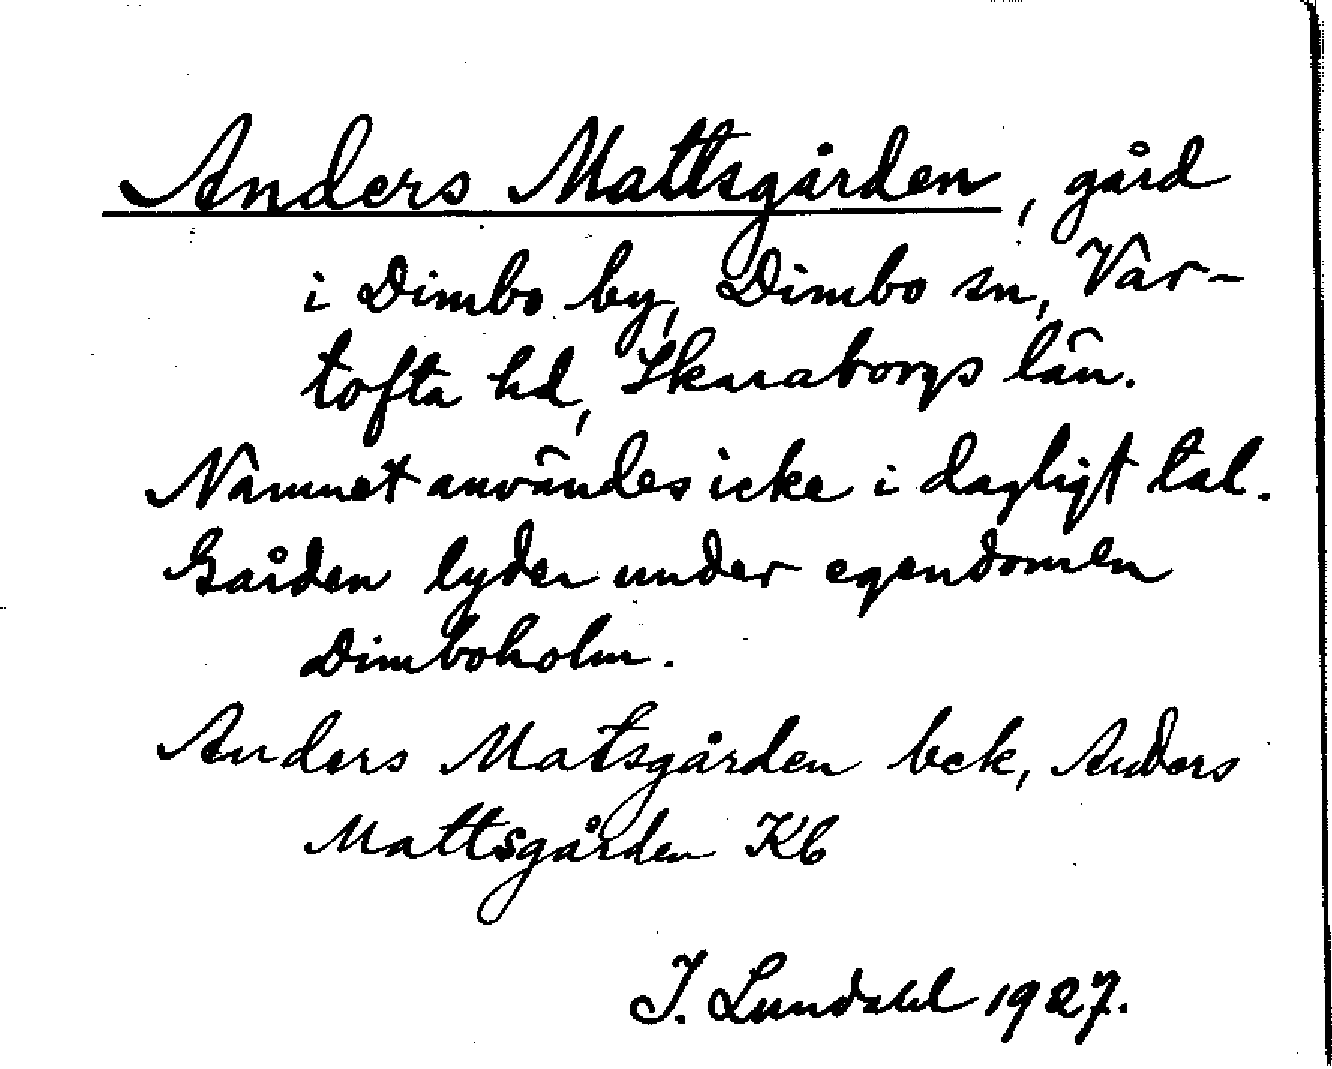 Anders Mattsgården, gård
i Dimbo by, Dimbo sn, Var-
tofta hd, Skaraborgs län.
Namnet användes icke i dagligt tal.
Gården lyder under egendomen
Dimboholm.
Anders Matsgården bek, Anders
Mattsgården Kb
I. Lundahl 1927.